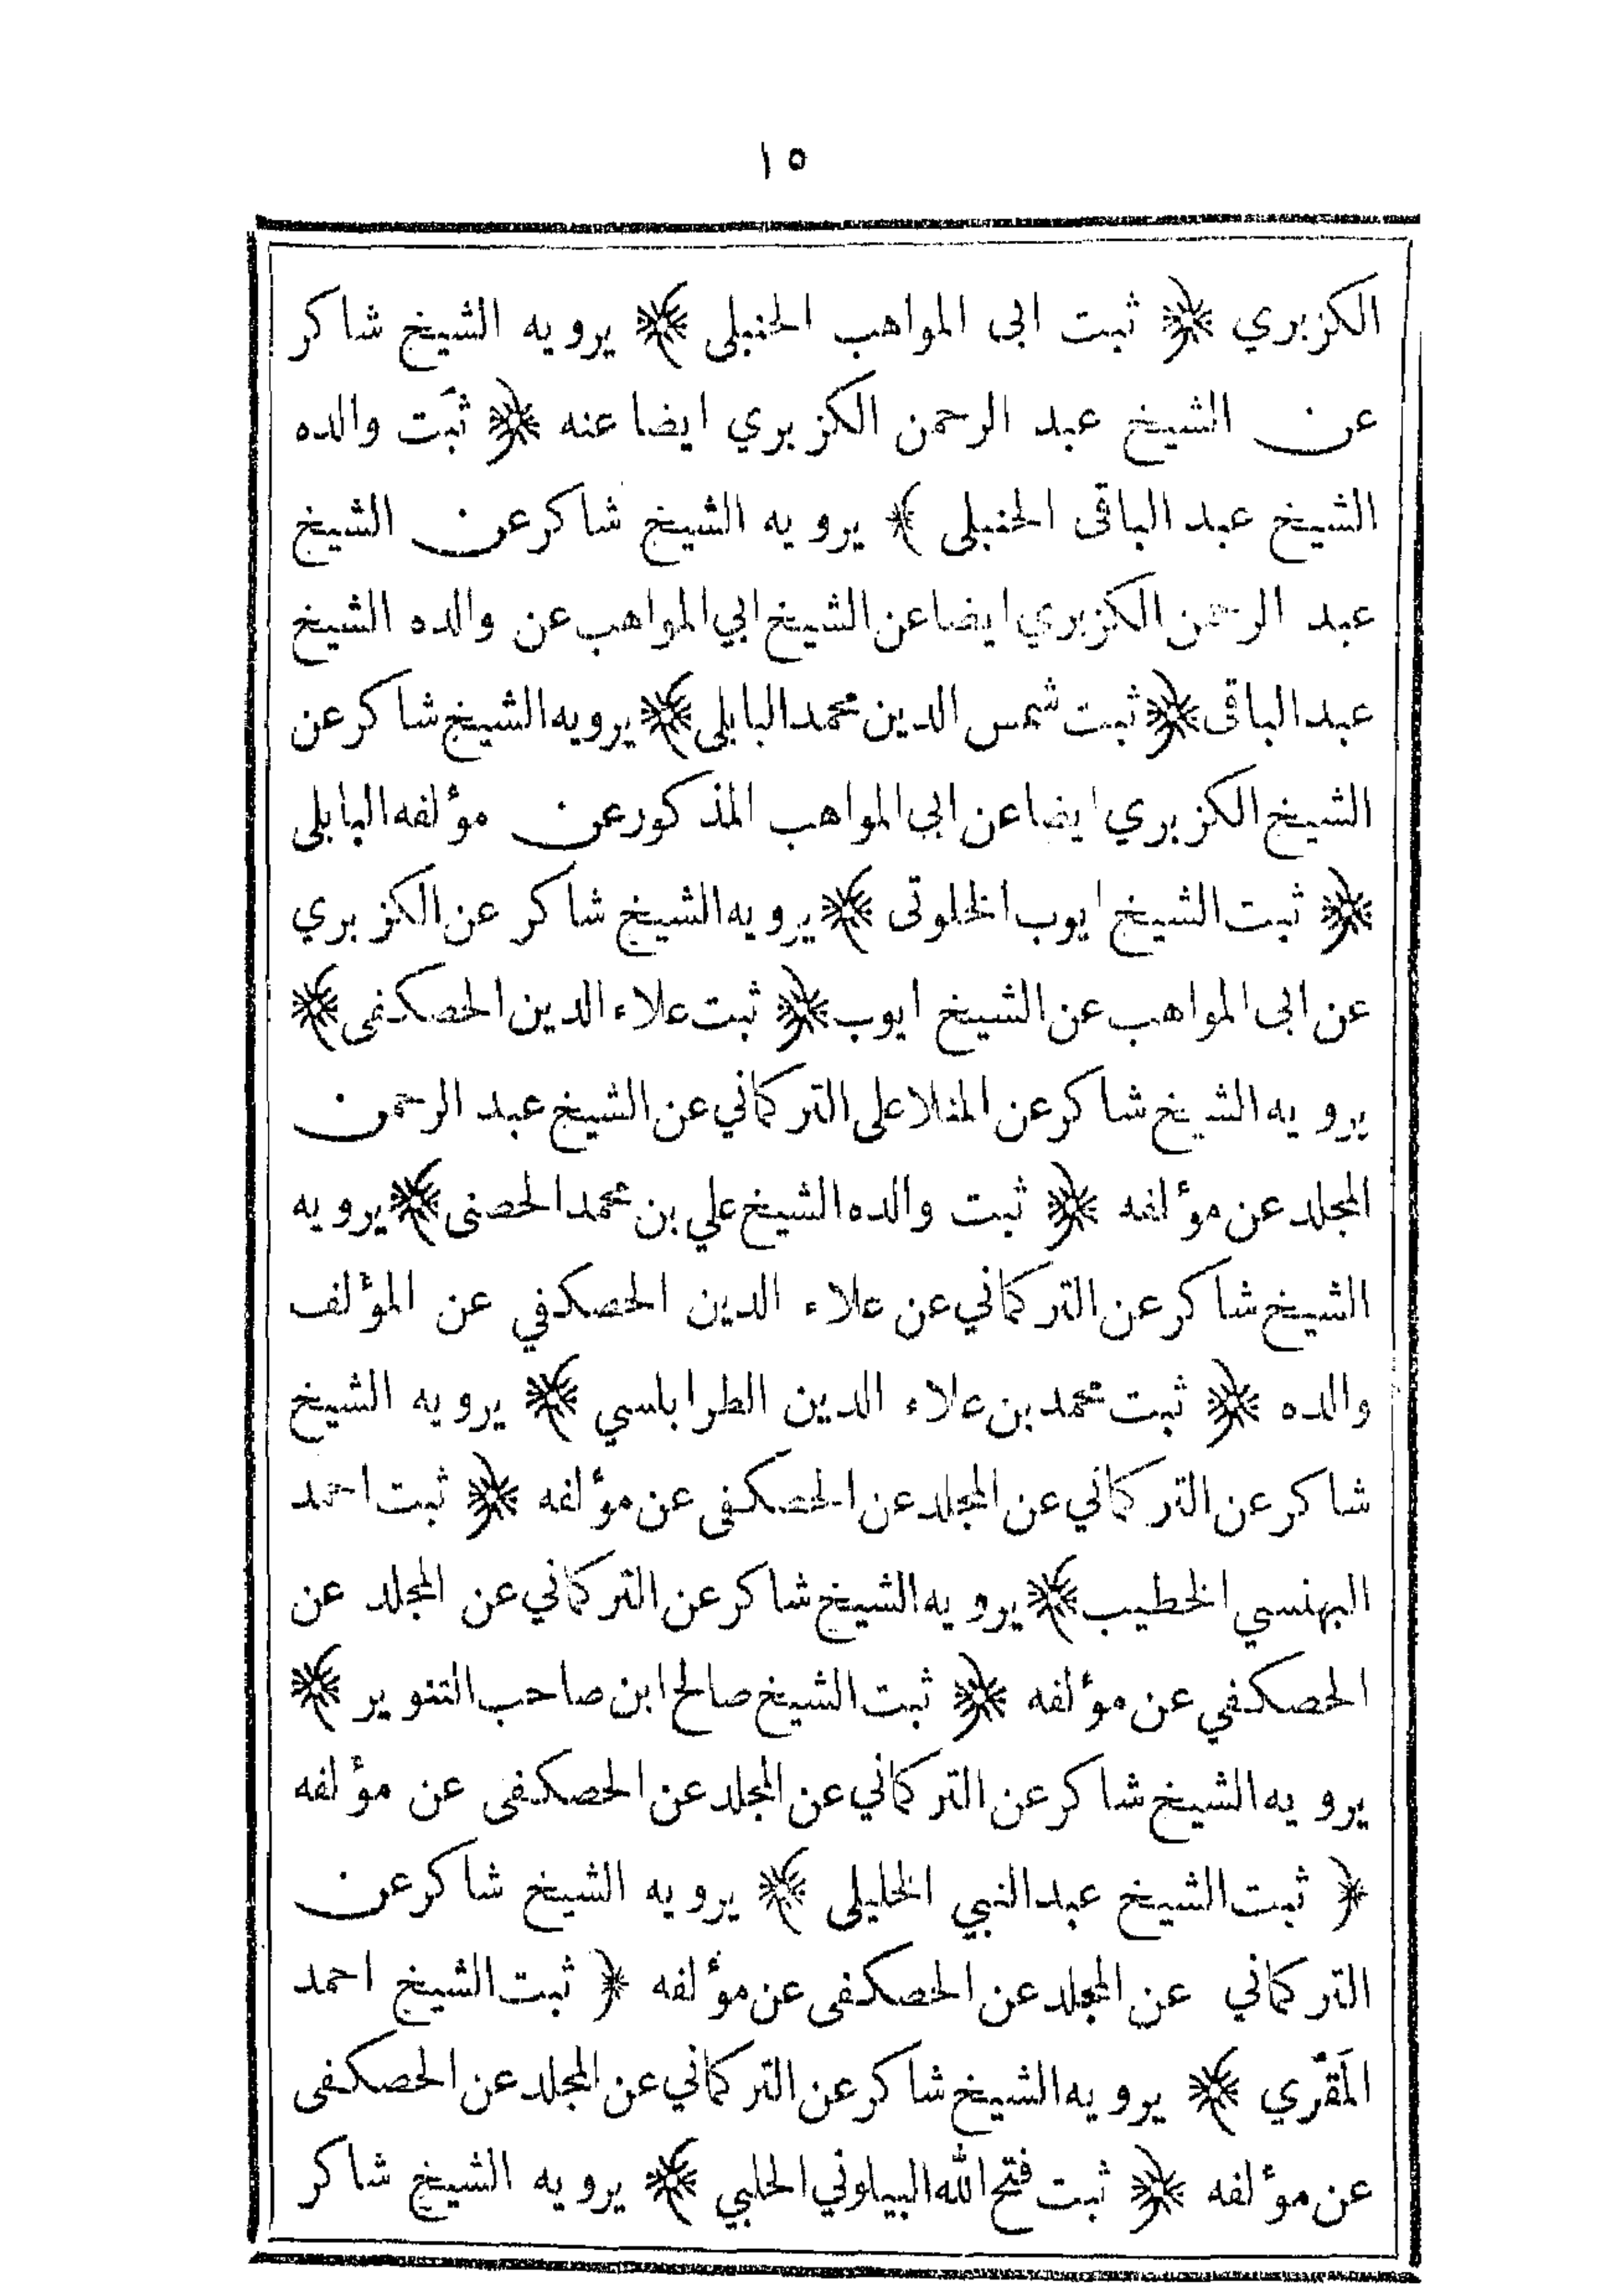 ١٥
الكزبري ﴿ ثبت ابى المواهب الحنبلى ﴾ يرويه الشيخ شاكر
عن الشيخ عبد الرحمن الكزبري ايضا عنه ﴿ ثَبَت والده
الشيخ عبد الباقى الحنبلى ﴾ يرويه الشيخ شاكر عن الشيخ
عبد الرحمن الكزبري ايضا عن الشيخ ابي المواهب عن والده الشيخ
عبد الباقى ﴿ ثبت شمس الدين محمد البابلى ﴾ يرويه الشيخ شاكر عن
الشيخ الكزبري ايضا عن ابي المواهب المذكور عن مؤلفه البابلى
﴿ ثبت الشيخ ايوب الخلوتى ﴾ يرويه الشيخ شاكر عن الكزبري
عن ابى المواهب عن الشيخ ايوب ﴿ ثبت علاء الدين الحصكفى ﴾
يرويه الشيخ شاكر عن المنلا على التركماني عن الشيخ عبد الرحمن
المجلد عن مؤلفه ﴿ ثبت والده الشيخ علي بن محمد الحصنى ﴾ يرويه
الشيخ شاكر عن التركماني عن علاء الدين الحصكفي عن المؤلف
والده ﴿ ثبت محمد بن علاء الدين الطرابلسي ﴾ يرويه الشيخ
شاكر عن التركماني عن المجلد عن الحصكفى عن مؤلفه ﴿ ثبت احمد
البهنسي الخطيب ﴾ يرويه الشيخ شاكر عن التركماني عن المجلد عن
الحصكفي عن مؤلفه ﴿ ثبت الشيخ صالح ابن صاحب التنوير ﴾
يرويه الشيخ شاكر عن التركماني عن المجلد عن الحصكفى عن مؤلفه
﴿ ثبت الشيخ عبد النبي الخليلى ﴾ يرويه الشيخ شاكر عن
التركماني عن المجلد عن الحصكفى عن مؤلفه ﴿ ثبت الشيخ احمد
المَقّري ﴾ يرويه الشيخ شاكر عن التركماني عن المجلد عن الحصكفى
عن مؤلفه ﴿ ثبت فتح الله البيلوني الحلبي ﴾ يرويه الشيخ شاكر